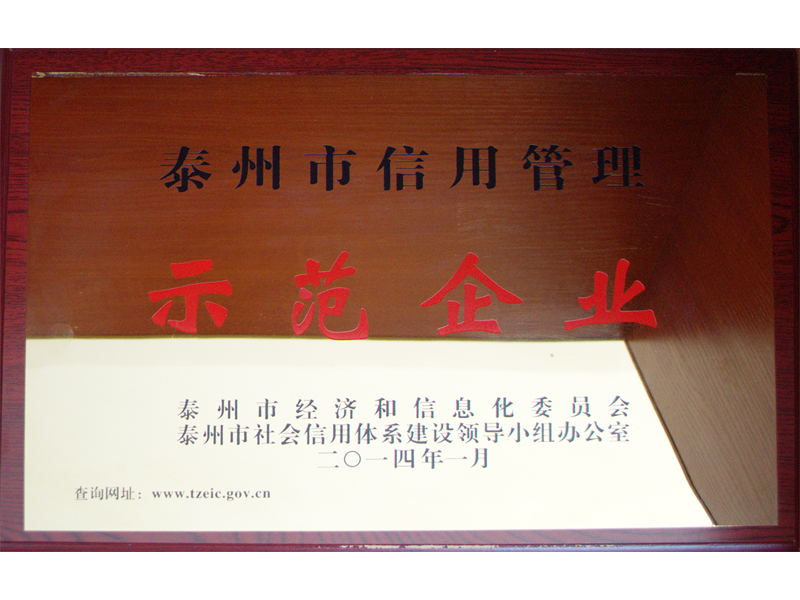 泰州市信用管理
示范企业
泰州市经济和信息化委员会
泰州市社会信用体系建设领导小组办公室
二〇一四年一月
查询网址：www.tzeic.gov.cn